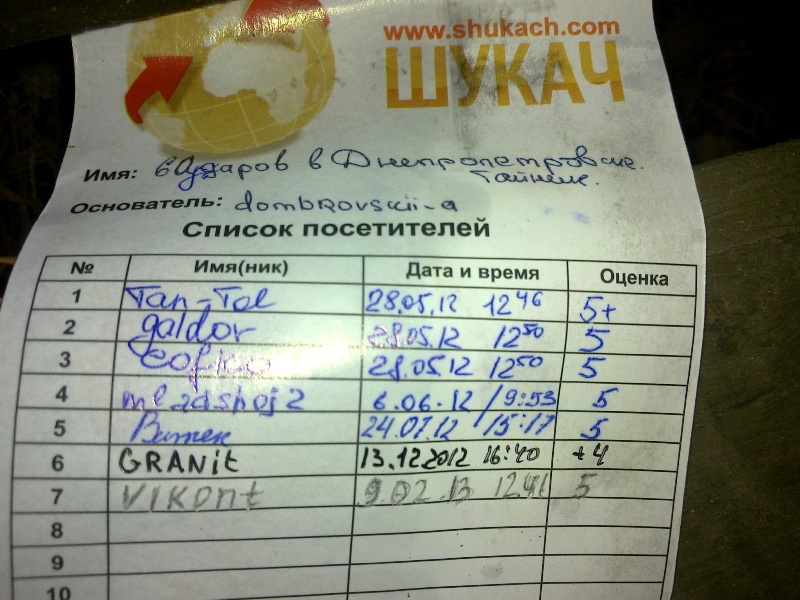 www.shukach.com
ШУКАЧ
Имя: 6 Ударов в Днепропетровске.
Тайник.
Основатель: dombrovskii-a
Список посетителей
№ Имя(ник) Дата и время Оценка
1 Tan-Tol 28.05.12 12 46 5+
2 galdor 28.05.12 12 50 5
3 28.05.12 12 50 5
4 mladshoj2 6.06.12 / 9:53 5
5 Витек 24.07.12 / 15:17 5
6 GRANit 13.12.2012 16:40 +4
7 VIKONt 9.02.13 12.41 5
8
9
10